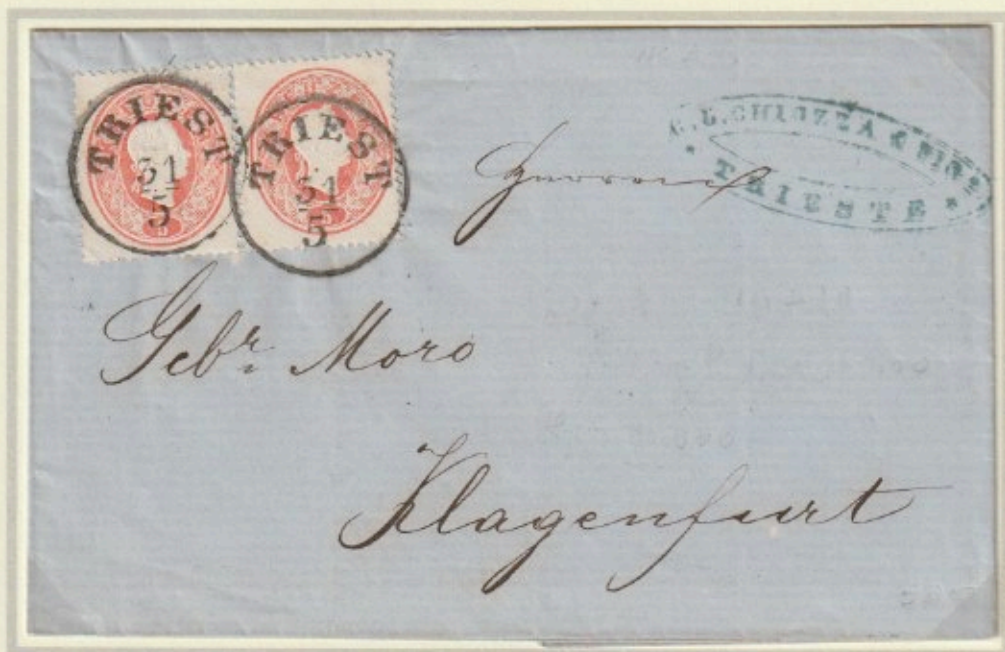 TRIEST
31
5
TRIEST
31
5
CHIOZZA & FIGO
TRIESTE
Gebr. Moro
Klagenfurt